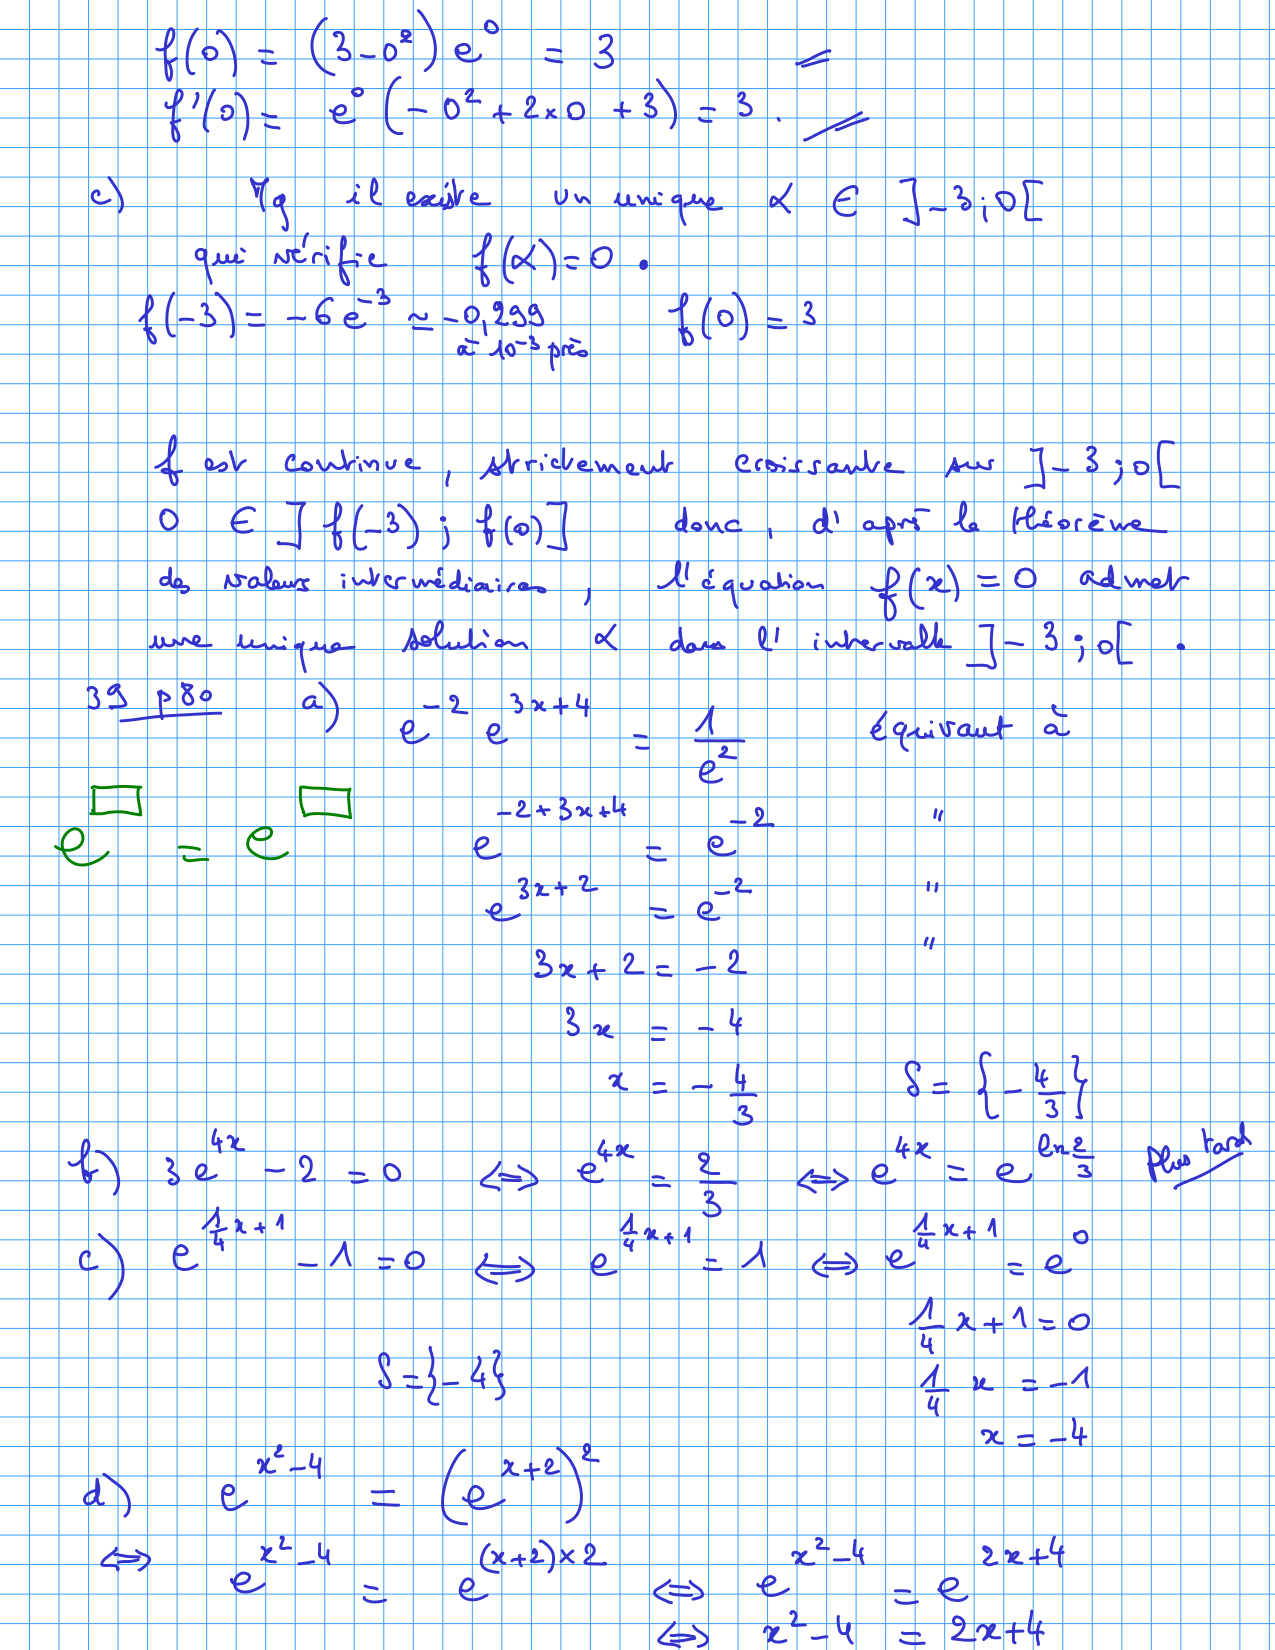 f(0) = (3-0²) e⁰ = 3
f'(0) = e⁰ (-0² + 2×0 + 3) = 3.
c) Mq il existe un unique α ∈ ]-3;0[
qui vérifie f(α)=0.
f(-3) = -6e⁻³ ≃ -0,299 f(0) = 3
à 10⁻³ près
f est continue, strictement croissante sur ]-3;0[
0 ∈ ]f(-3); f(0)] donc, d'après le théorème
des valeurs intermédiaires, l'équation f(x) = 0 admet
une unique solution α dans l'intervalle ]-3;0[.
39 p80 a) e^{-2} e^{3x+4} = 1/e² équivaut à
e^□ = e^□
e^{-2+3x+4} = e^{-2} "
e^{3x+2} = e^{-2} "
3x+2 = -2 "
3x = -4
x = -4/3 S = {-4/3}
b) 3e^{4x} - 2 = 0 ⇔ e^{4x} = 2/3 ⇔ e^{4x} = e^{ln 2/3} Plus tard
c) e^{1/4 x+1} - 1 = 0 ⇔ e^{1/4 x+1} = 1 ⇔ e^{1/4 x+1} = e⁰
1/4 x + 1 = 0
S = {-4} 1/4 x = -1
x = -4
d) e^{x²-4} = (e^{x+2})²
⇔ e^{x²-4} = e^{(x+2)×2} ⇔ e^{x²-4} = e^{2x+4}
⇔ x²-4 = 2x+4